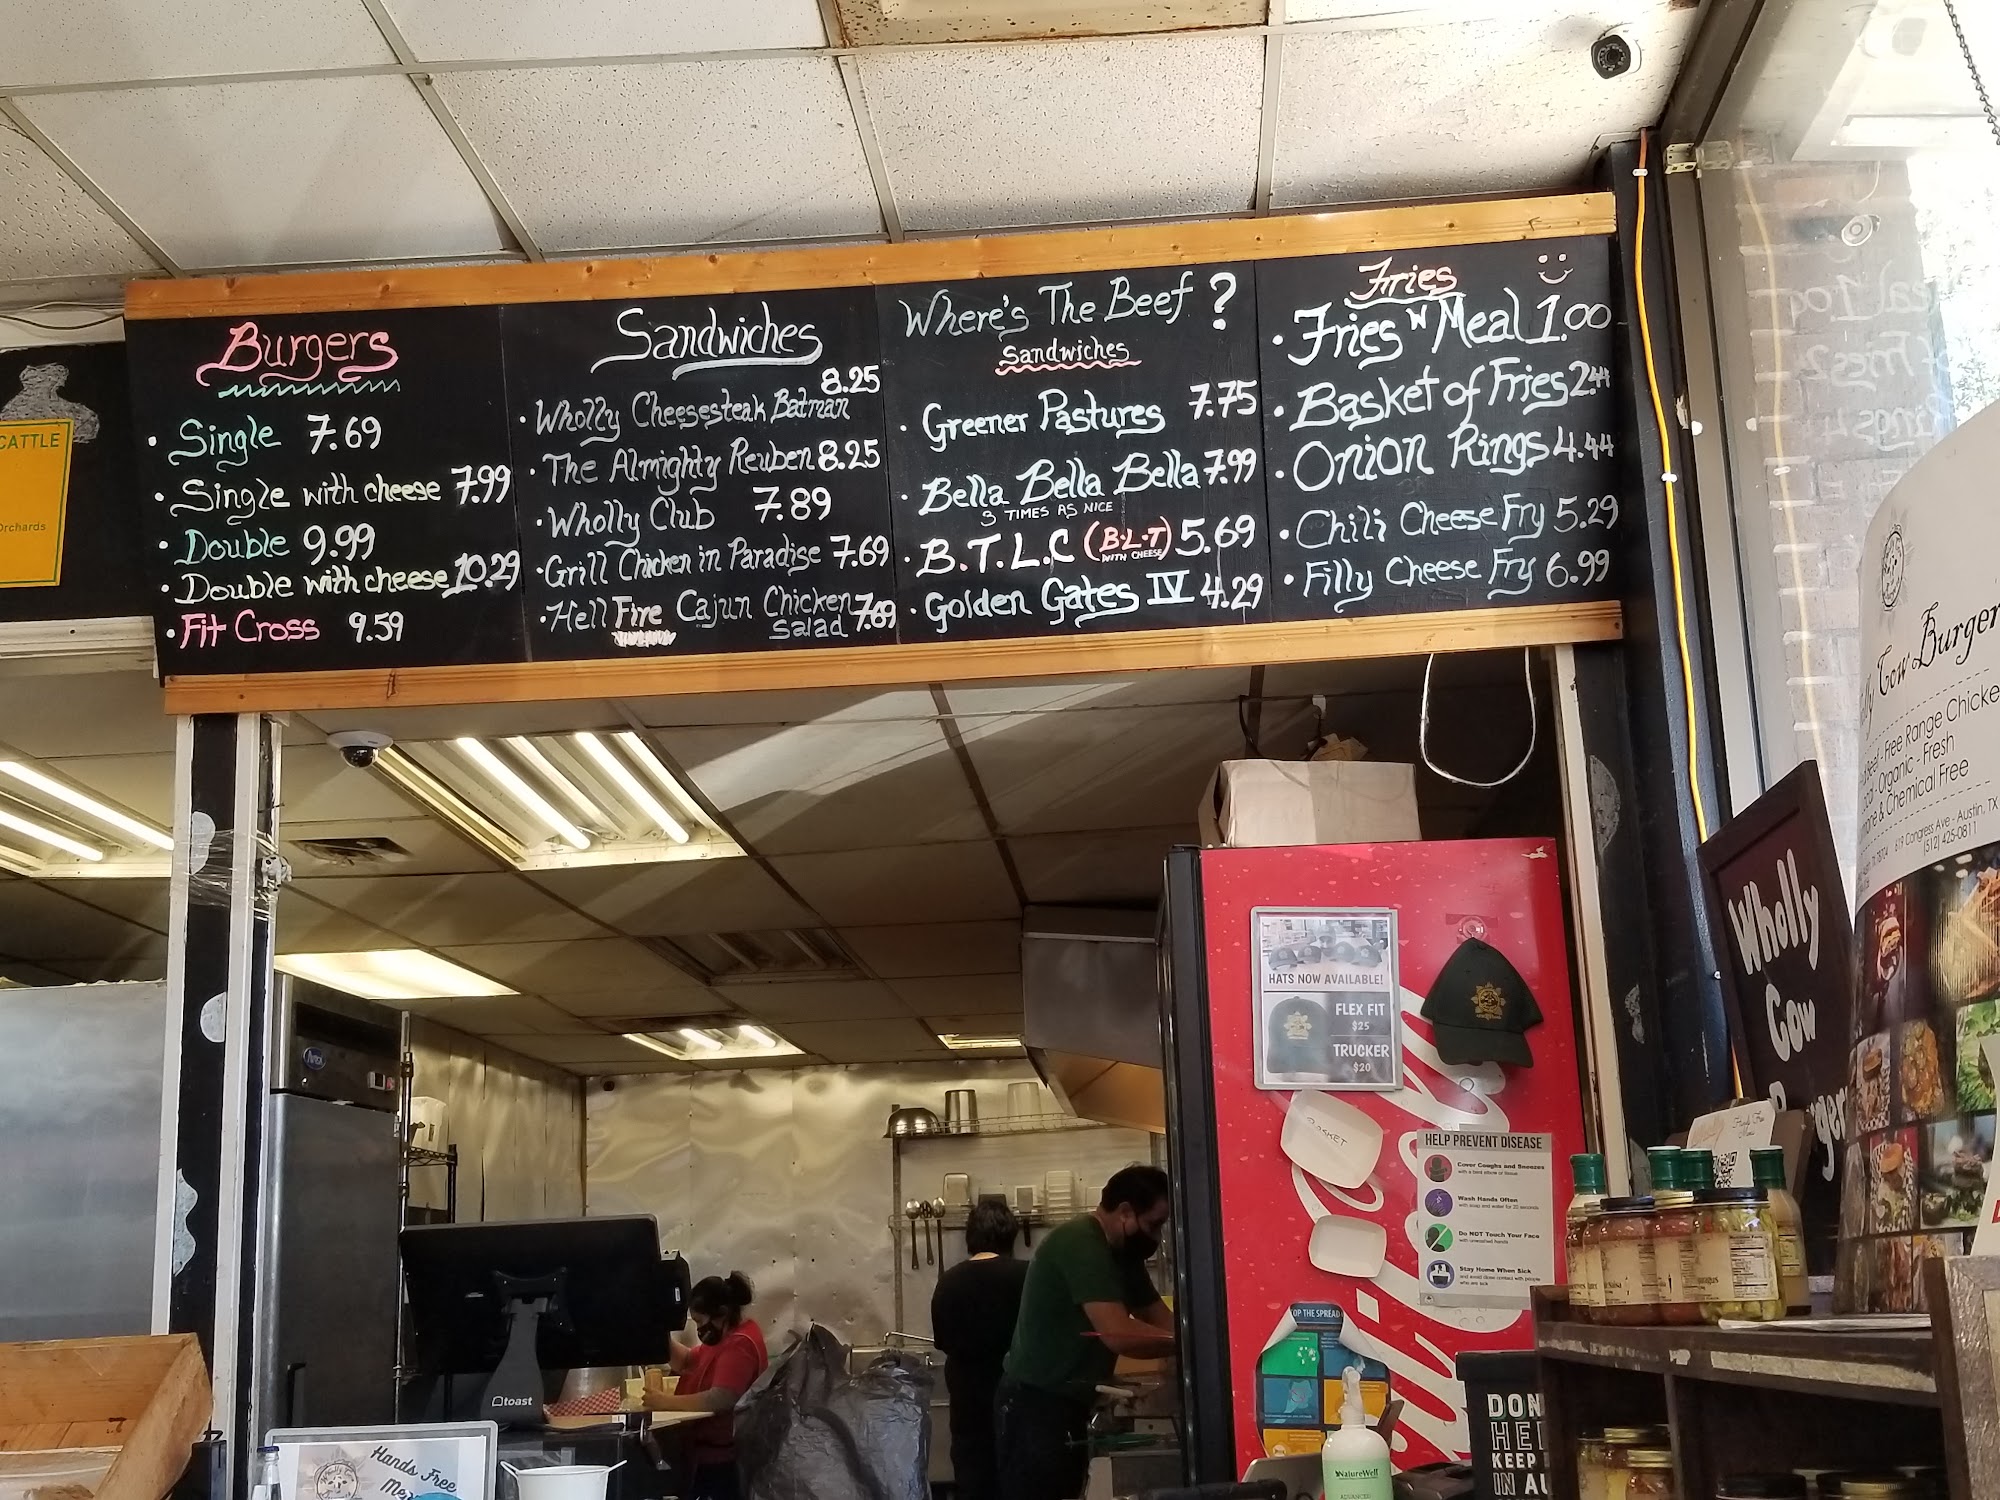 Burgers
Single 7.69
Single with cheese 7.99
Double 9.99
Double with cheese 10.29
Fit Cross 9.59
Sandwiches
Wholly Cheesesteak Batman 8.25
The Almighty Reuben 8.25
Wholly Club 7.89
Grill Chicken in Paradise 7.69
Hell Fire Cajun Chicken Salad 7.69
Where's The Beef?
Sandwiches
Greener Pastures 7.75
Bella Bella Bella 7.99
3 TIMES AS NICE
B.T.L.C (B.L.T WITH CHEESE) 5.69
Golden Gates IV 4.29
Fries
Fries W Meal 1.00
Basket of Fries 2.44
Onion Rings 4.44
Chili Cheese Fry 5.29
Filly Cheese Fry 6.99
CATTLE
Orchards
HATS NOW AVAILABLE!
FLEX FIT
$25
TRUCKER
$20
BASKET
HELP PREVENT DISEASE
Cover Coughs and Sneezes
Wash Hands Often
with soap and water for 20 seconds
Do NOT Touch Your Face
with unwashed hands
Stay Home When Sick
OP THE SPREAD
Cow Burger
Beef - Free Range Chicke
Organic - Fresh
& Chemical Free
619 Congress Ave - Austin, TX
(512) 425-0811
Wholly
Cow
toast
Hands Free
NatureWell
ADVANCED
DON
HE
KEEP
IN AU